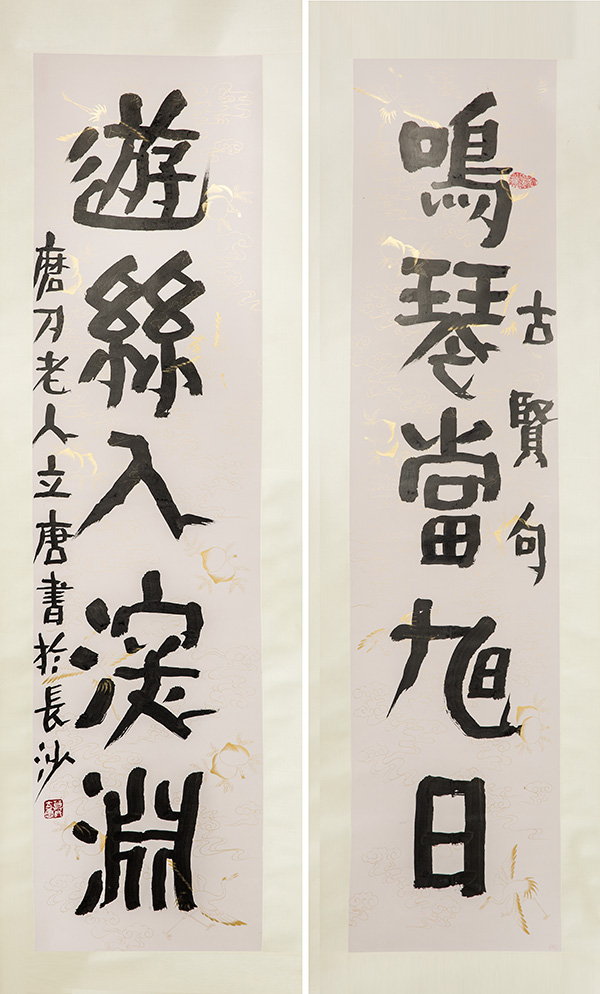 鳴琴當旭日
古賢句
遊絲入深淵
磨刀老人立唐書於長沙